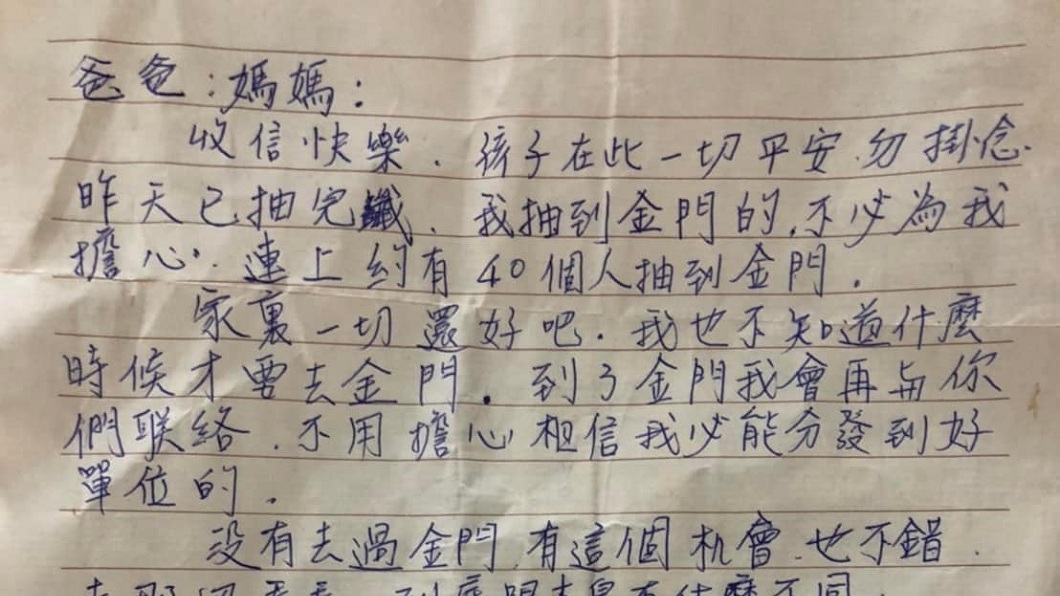 爸爸:媽媽:
收信快樂.孩子在此一切平安.勿掛念.
昨天已抽完籤.我抽到金門的.不必為我
擔心.連上約有40個人抽到金門.
家裏一切還好吧.我也不知道什麼
時候才要去金門.到了金門我會再与你
們联絡.不用擔心相信我必能分發到好
單位的.
没有去過金門.有這個机會.也不錯.
去那裡看看.到底金門